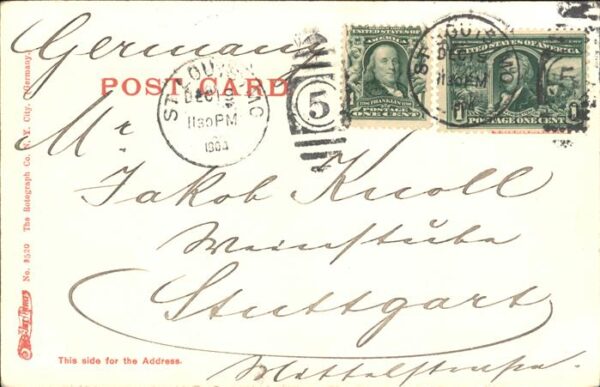 Germany
POST CARD
ST. LOUIS, MO
DEC 19
11 30 PM
1904
5
UNITED STATES OF AMERICA
FRANKLIN
POSTAGE
ONE CENT
ST. LOUIS, MO
DEC 19
11 30 PM
5
UNITED STATES OF AMERICA
1
POSTAGE ONE CENT
1
Mr
Jakob Knoll
Weinstube
Stuttgart
Mittelstrasse.
This side for the Address.
No. 9520 The Rotograph Co. N. Y. City. (Germany)